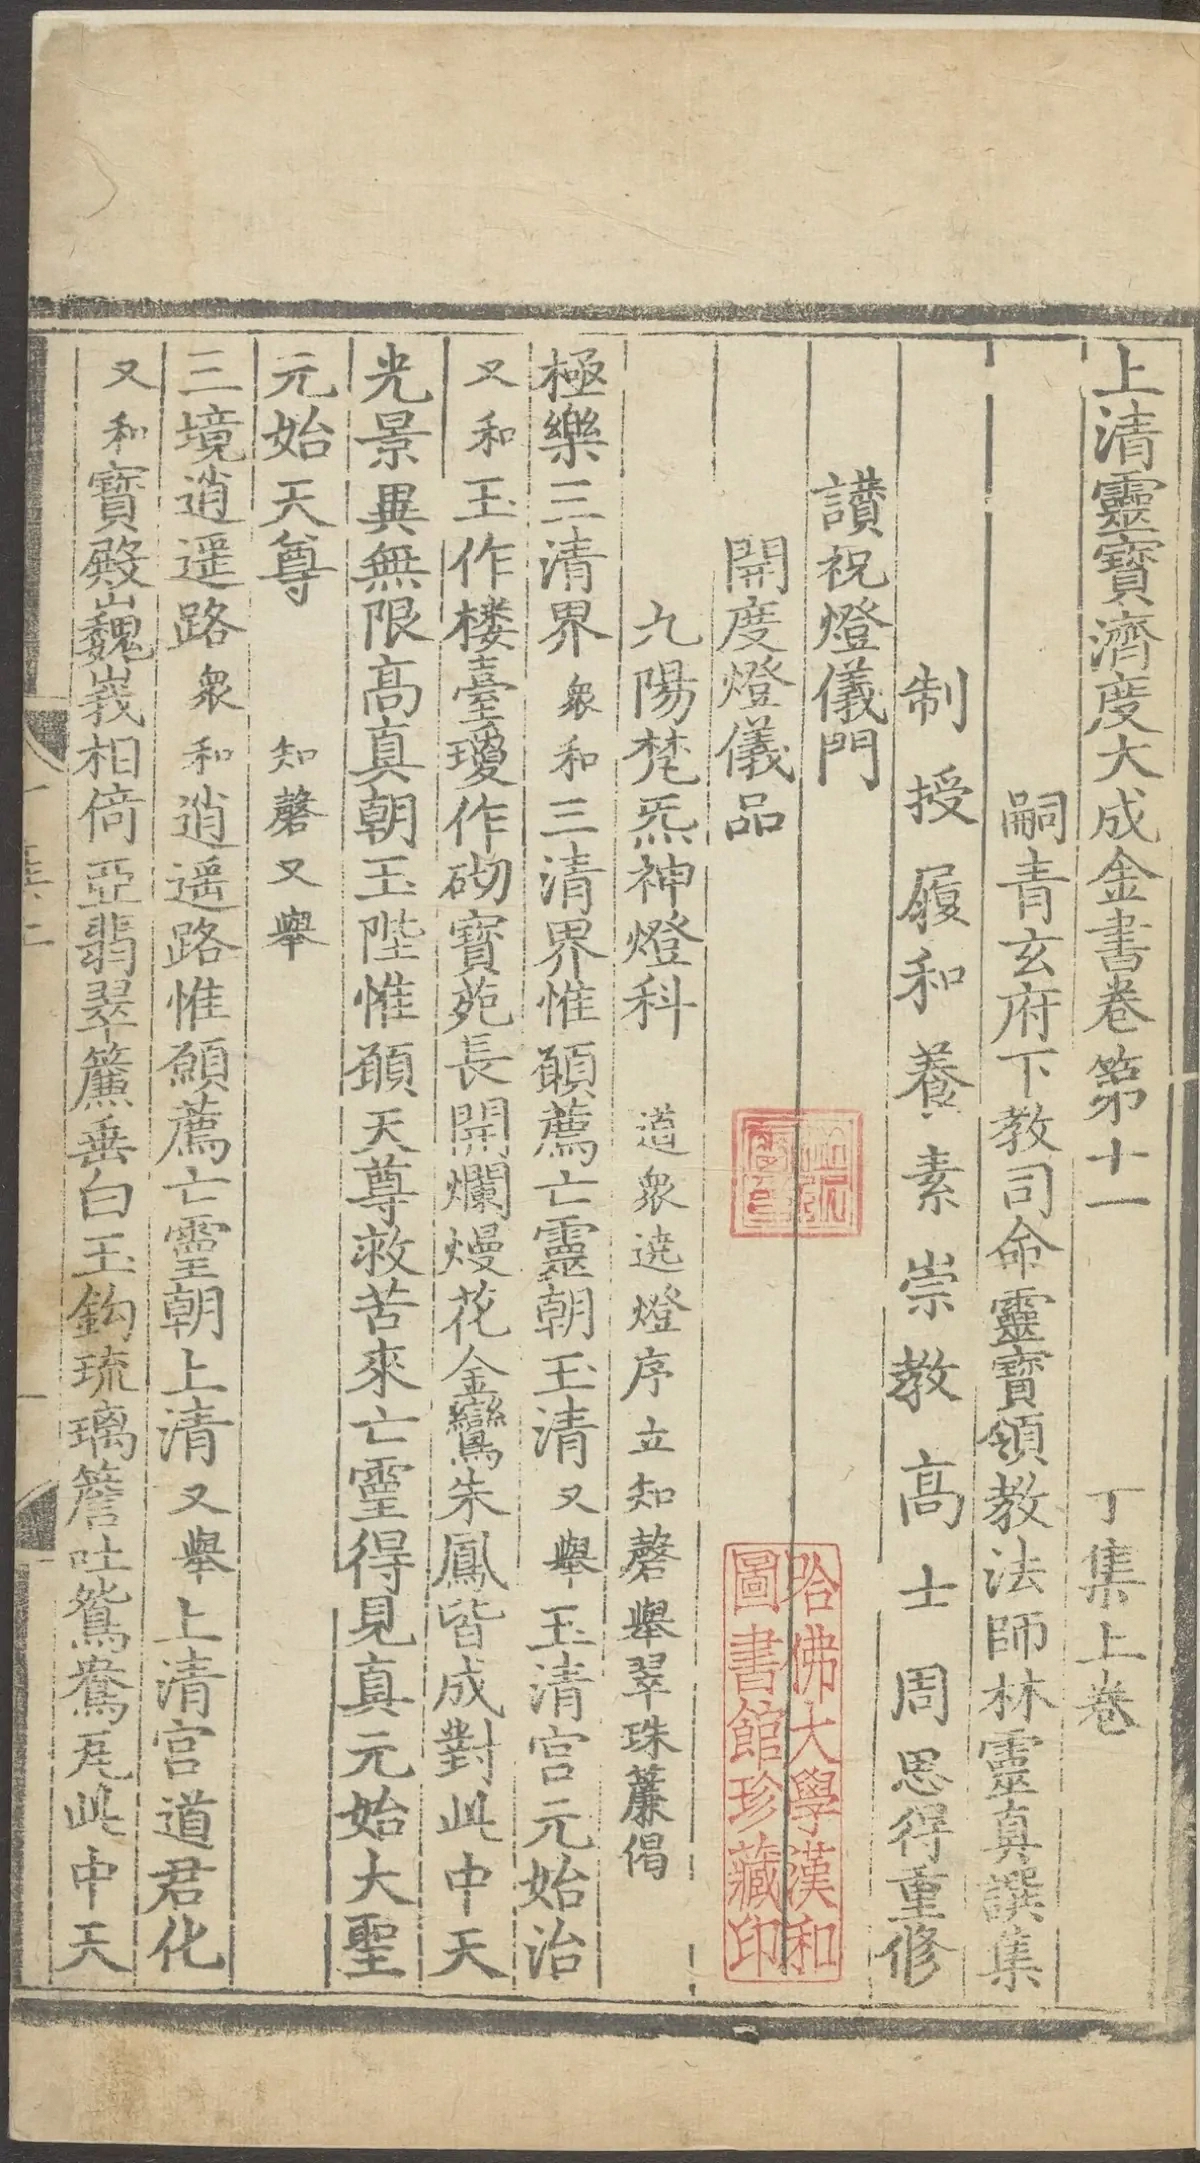 上清靈寶濟度大成金書卷第十一 丁集上卷
嗣青玄府下教司命靈寶領教法師林靈真譔集
制授履和養素崇教高士周思得重修
讚祝燈儀門
開度燈儀品
九陽梵炁神燈科 道衆遶燈序立知磬舉翠珠簾偈
極樂三清界衆和三清界惟願薦亡靈朝玉清又舉玉清宫元始治
又和玉作楼臺瓊作砌寳苑長開爛熳花金鸞朱鳳皆成對此中天
光景異無限高真朝玉陛惟願天尊救苦來亡靈得見真元始大聖
元始天尊 知磬又舉
三境逍遥路衆和逍遥路惟願薦亡靈朝上清又舉上清宫道君化
又和寳殿巍峩相倚亞翡翠簾垂白玉鈎琉璃簷吐鴛鴦瓦此中天
哈佛大學漢和
圖書館珍藏印